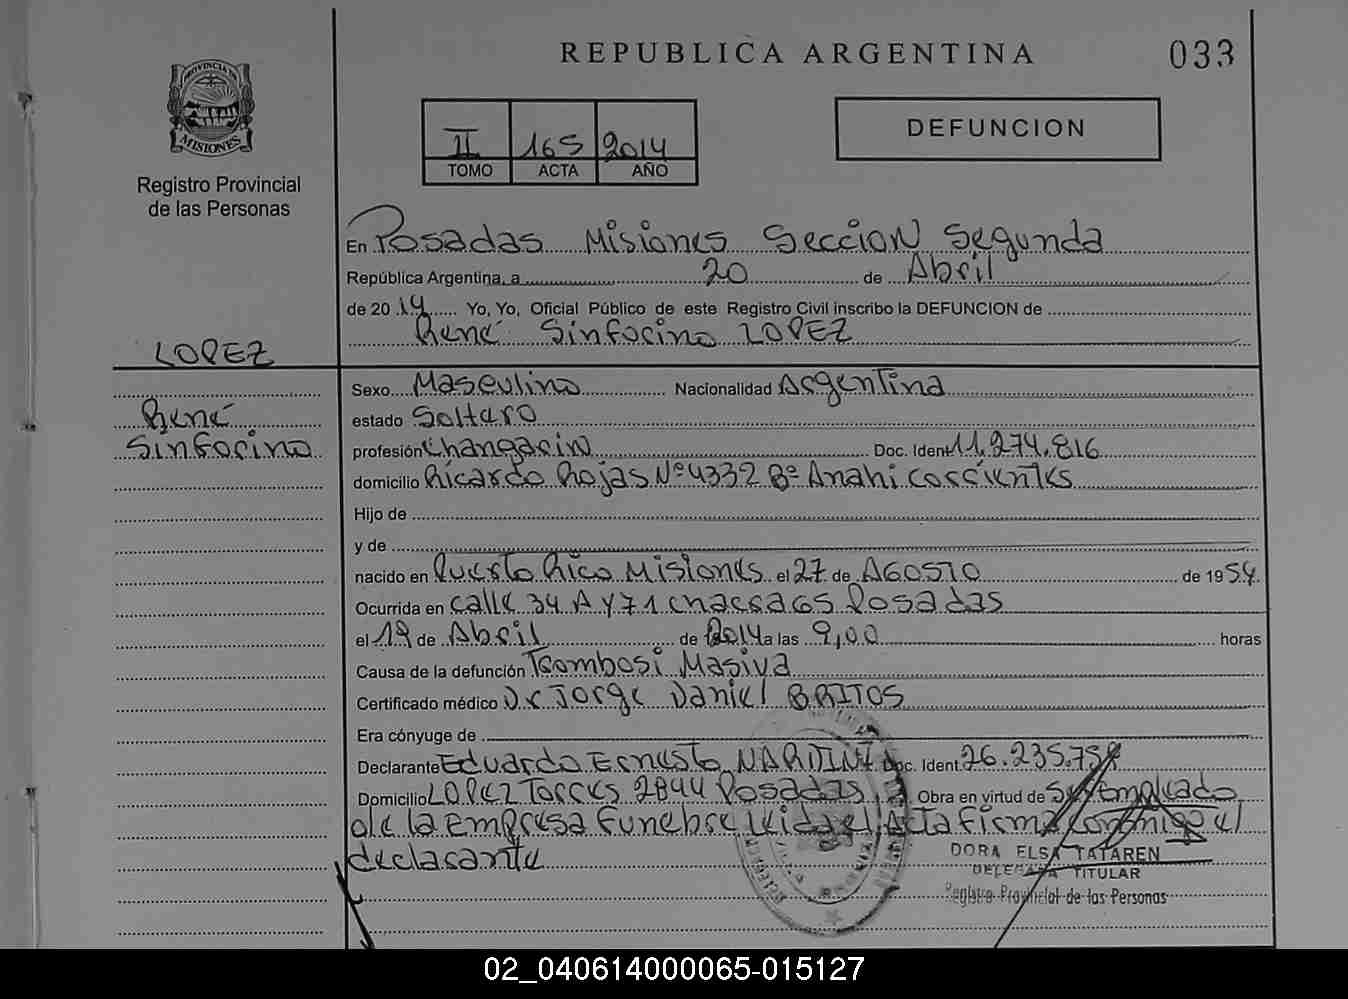 REPUBLICA ARGENTINA
033
PROVINCIA DE
MISIONES
Registro Provincial
de las Personas
II 165 2014
TOMO ACTA AÑO
DEFUNCION
En Posadas Misiones Seccion Segunda
República Argentina, a 20 de Abril
de 2014 Yo, Yo, Oficial Público de este Registro Civil inscribo la DEFUNCION de
René Sinforino LOPEZ
LOPEZ
René
Sinforino
Sexo Masculino Nacionalidad Argentina
estado Soltero
profesión Changarin Doc. Ident 11.274.816
domicilio Ricardo Rojas Nº 4332 Bº Anahi Corrientes
Hijo de
y de
nacido en Puerto Rico Misiones el 27 de AGOSTO de 1954
Ocurrida en calle 34 A y 71 chacra 65 Posadas
el 19 de Abril de 2014 a las 9,00 horas
Causa de la defunción Trombosi Masiva
Certificado médico Dr Jorge Daniel BRITOS
Era cónyuge de
Declarante Eduardo Ernesto NARDINI Doc. Ident. 26.235.758
Domicilio LOPEZ Torres 2844 Posadas Obra en virtud de Ser Empleado
de la empresa Funebre Leida el Acta firma conmigo el
declarante
DORA ELSA TATAREN
DELEGADA TITULAR
Registro Provincial de las Personas
02_040614000065-015127